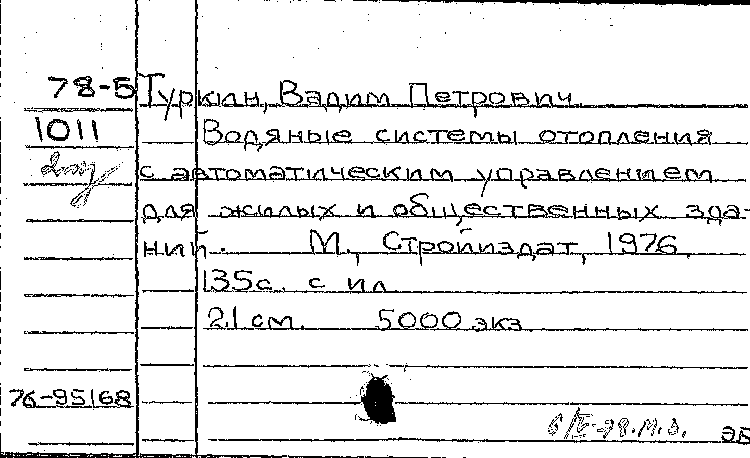 78-5 Туркин, Вадим Петрович.
1011 Водяные системы отопления
с автоматическим управлением
для жилых и общественных зда-
ний. М., Стройиздат, 1976.
135с. с ил.
21 см. 5000 экз.
76-95168
6/IV-78. М.З. ЭБ